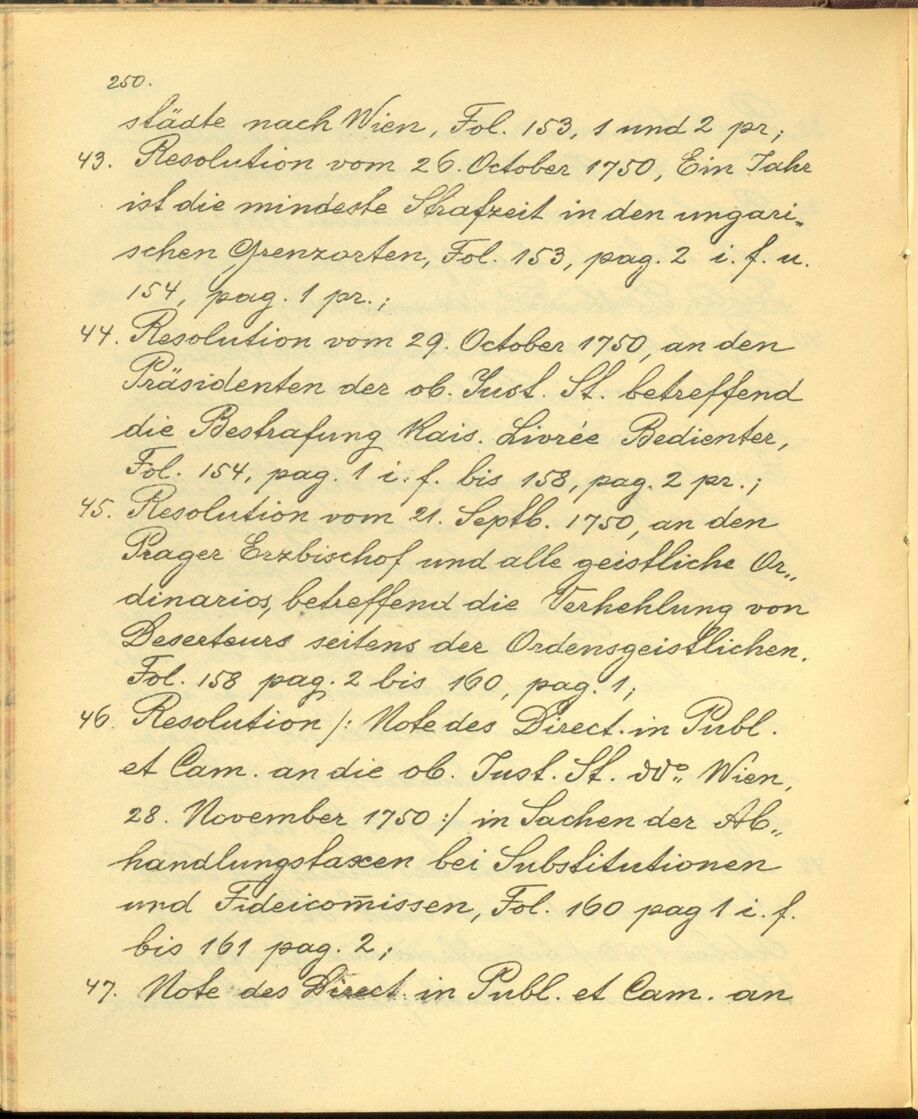 250.
städte nach Wien, Fol. 153, 1 und 2 pr;
43. Resolution vom 26. October 1750, Ein Jahr
ist die mindeste Strafzeit in den ungari„
schen Grenzorten, Fol. 153, pag. 2 i. f. u.
154, pag. 1 pr.;
44. Resolution vom 29. October 1750, an den
Präsidenten der ob. Just. St. betreffend
die Bestrafung Kais. Livrée Bedienter,
Fol. 154, pag. 1 i. f. bis 158, pag. 2 pr.;
45. Resolution vom 21. Septb. 1750, an den
Prager Erzbischof und alle geistliche Or„
dinarios, betreffend die Verhehlung von
Deserteurs seitens der Ordensgeistlichen.
Fol. 158 pag. 2 bis 160, pag. 1;
46. Resolution /: Note des Direct. in Publ.
et Cam. an die ob. Just. St. ddo. Wien,
28. November 1750 :/ in Sachen der Ab„
handlungstaxen bei Substitutionen
und Fideicom̄issen, Fol. 160 pag 1 i. f.
bis 161 pag. 2;
47. Note des Direct. in Publ. et Cam. an